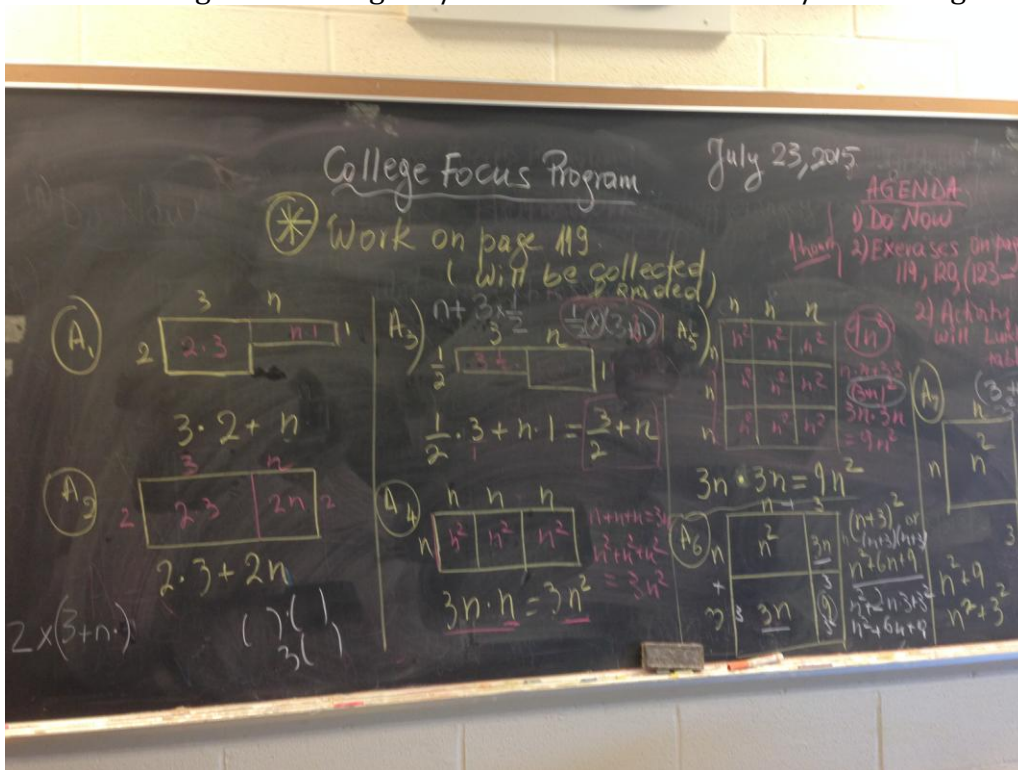 College Focus Program
July 23, 2015
AGENDA
1) Do Now
1 hour
2) Exercises on page
119, 120, (123-
2) Activity
will
* Work on page 119.
( Will be collected
graded)
A₁
3 n
2 2·3 n·1 1
3·2+n
A₂
3 n
2 2·3 2n 2
2·3+2n
2x(3+n·)
( )·( )
3( )
A₃)
n+3x½
3 n
1/2 1
1/2·3+n·1=3/2+n
A₄
n n n
n n² n² n²
n+n+n=3n
n²+n²+n²
=3n²
3n·n=3n²
A₅)
n n n
n n² n² n²
n n² n² n²
n n² n² n²
9n²
(3n)²
3n·3n
=9n²
3n·3n=9n²
A₆
n+3
n n² 3n
+
3 3 3n 9
(n+3)² or
(n+3)(n+3)
n²+6n+9
n²+2n3+3²
n²+6n+9
n
n n²
3
n²+9
n²+3²